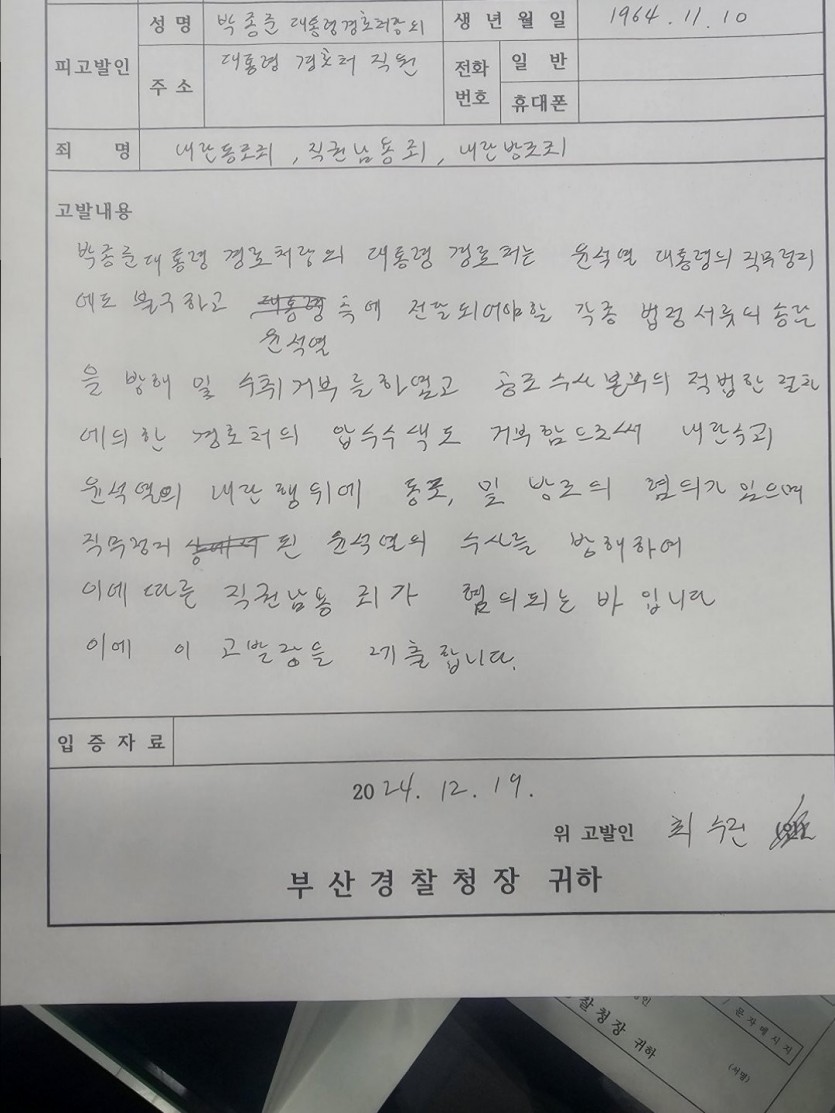 성 명 박종준 대통령경호처장외 생 년 월 일 1964. 11. 10
피고발인 주 소 대통령 경호처 직원 전화 번호 일 반
휴대폰
죄 명 내란동조죄, 직권남용죄, 내란방조죄
고발내용
박종준대통령 경호처장외 대통령 경호처는 윤석열 대통령의 직무정지
에도 불구하고 대통령 측에 전달되어야할 각종 법정 서륫의 송달
윤석열
을 방해 및 수취거부를하였고 공조수사본부의 적법한 절차
에의한 경호처의 압수수색도 거부함으로써 내란수괴
윤석열의 내란 행위에 동조, 및 방조의 혐의가 있으며
직무정지 된 윤석열의 수사를 방해하여
이에 따른 직권남용 죄가 혐의되는 바 입니다
이에 이 고발장을 제출합니다.
입 증 자 료
2024. 12. 19.
위 고발인 최수진
부 산 경 찰 청 장 귀하
찰 청 장 귀하
/ 문자메시지
(서명)